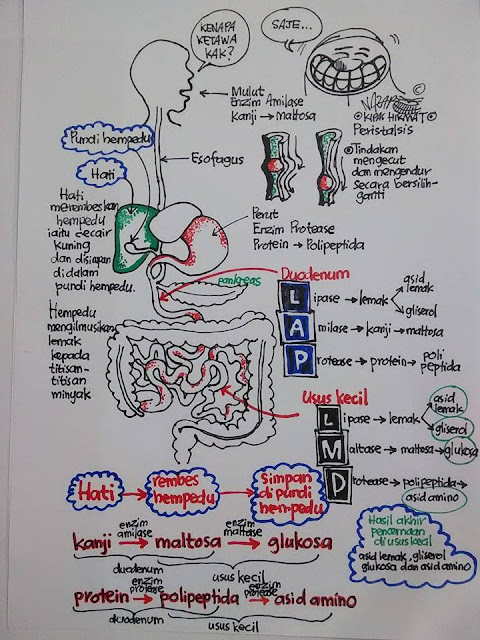 KENAPA
KETAWA
KAK?
SAJE...
©
KIPAS HIKMAT
Mulut
Enzim Amilase
Kanji → maltosa
Peristalsis
Tindakan
mengecut
dan mengendur
secara bersilih-
ganti
Pundi hempedu
Hati
Esofagus
Hati
merembeskan
hempedu
iaitu cecair
kuning
dan disimpan
di dalam
pundi hempedu.
Perut
Enzim Protease
Protein → Polipeptida
pankreas
Duodenum
Lipase → lemak
asid
lemak
gliserol
Amilase → kanji → maltosa
Protease → protein → poli
peptida
Hempedu
mengilmusikan
lemak
kepada
titisan-
titisan
minyak
Usus kecil
Lipase → lemak
asid
lemak
gliserol
Maltase → maltosa → glukosa
Protease → polipeptida →
asid amino
Hati → rembes
hempedu → Simpan
di pundi
hempedu
Hasil akhir
pencernaan
di usus kecil
asid lemak, gliserol
glukosa dan asid amino
kanji enzim amilase → maltosa enzim maltase → glukosa
duodenum usus kecil
protein enzim protease → polipeptida enzim protease → asid amino
duodenum usus kecil